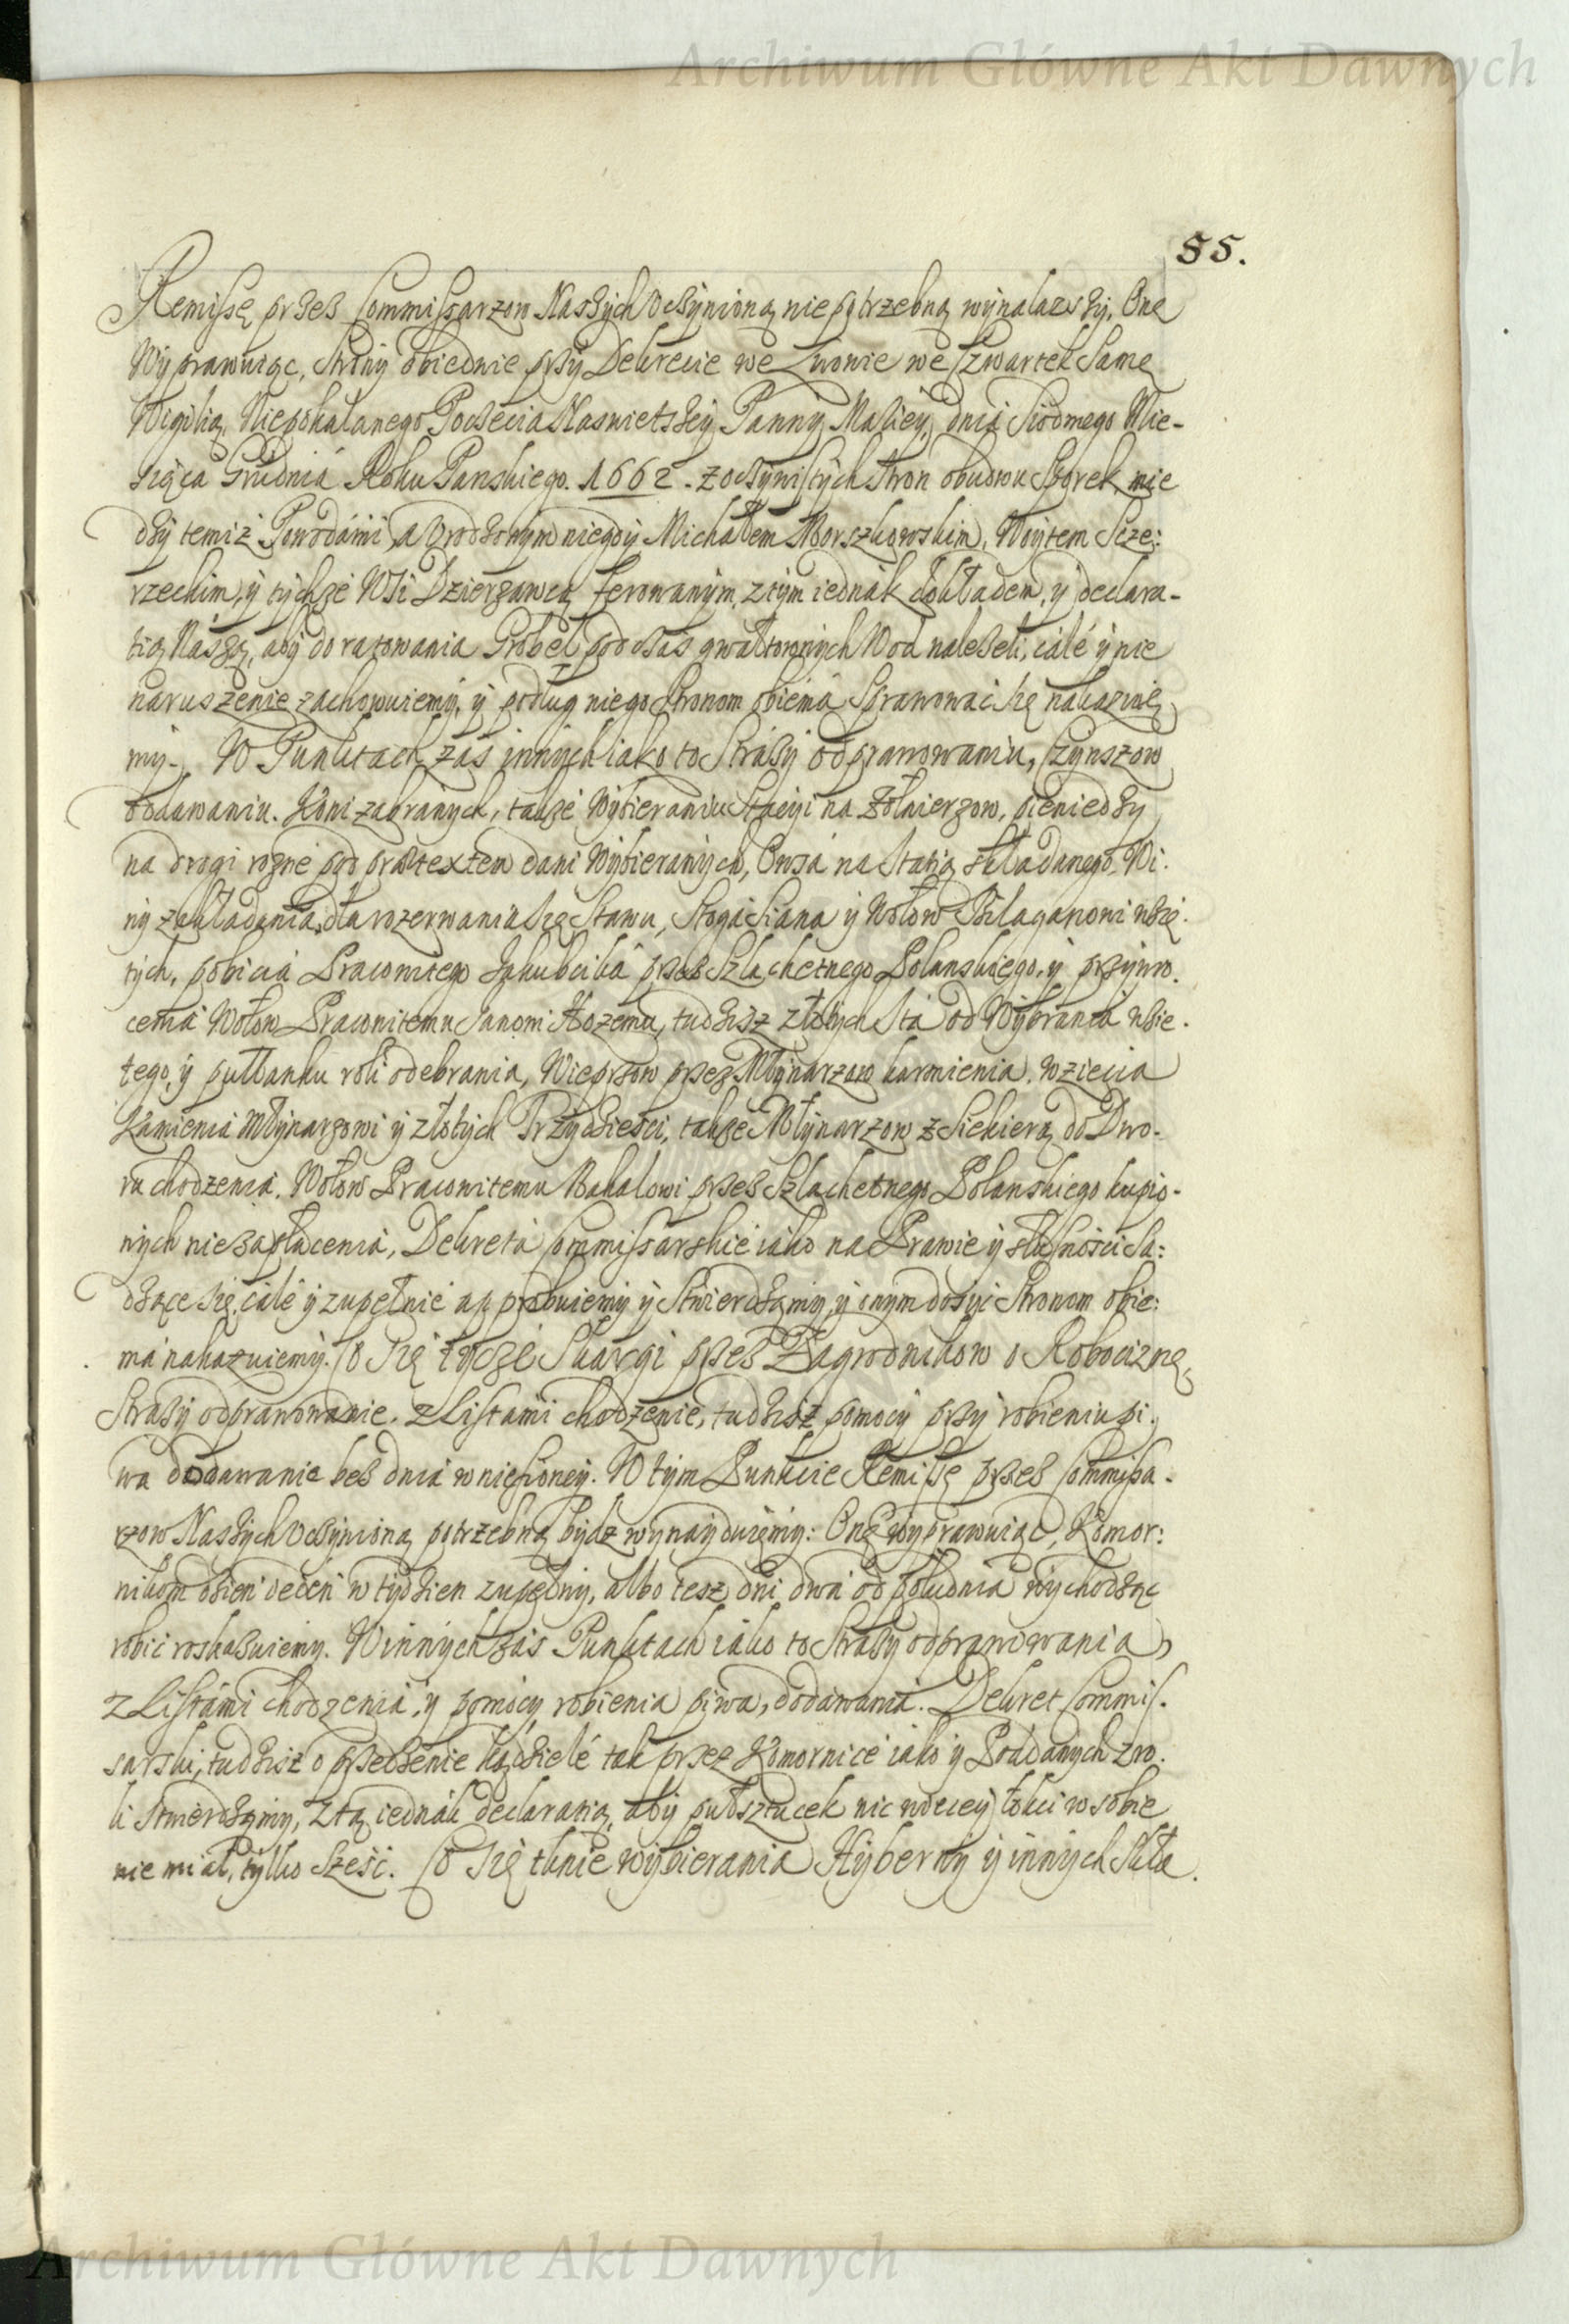 Archiwum Główne Akt Dawnych
55.
Remissę przez Commissarzow Naszych uczynioną nie potrzebną wynalazszy, Onę
Wyprawuiąc, Strony obiednie przy Dekrecie we Lwowie we Czwartek Samę
Wigilią Niepokalanego Poczęcia Naswietszey Panny Maryey, dnia Siodmego Mie-
siąca Grudnia Roku Panskiego. 1662. z oczywistych stron obudwu Sporek mie
dzy temiż Powodami, a Urodzonym niegdy Michałem Morszkowskim, Woytem Szcze:
rzeckim, y tychże Wsi Dzierzawcą ferowanym, z tym iednak dokładem, y declara-
tią Naszą, aby do ratowania Grobel podczas gwałtownych Wod należeli, całé y nie
naruszenie zachowuiemy, y podług niego Stronom obiema Sprawować się nakazuię
my. W Punktach zas innych iako to Straży odprawowaniu, Czynszow
oddawaniu. Koni zabranych, także Wybieraniu Stacyi na Żołnierzow, pieniedzy
na drogi rozné pod prætextem dani Wybieranych, Owsa na Statią składanego, Wi:
ny zakładania, dla rozerwania się Stawu, Stoga Siana y Wołow Bilaganowi wzię:
tych, pobicia Pracowitego Jakubcika przez Szlachetnego Polanskiego, y przywro.
cenia Wołow Pracowitemu Janowi Kozemu, tudzisz złotych Sta od Wybranca wzie.
tego, y pułłanku roli odebrania, Wieprzow przez Młynarzow karmienia, wziecia
Kamienia Młynarzowi y złotych Trzydziesci, także Młynarzow z Siekierą do Dwo-
ru chodzenia, Wołow Pracowitemu Bakalowi przez Szlachetnego Polanskiego kupio-
nych nie zapłacenia, Dekreta Commissarskie iako na Prawie y słusnosci Sa:
dzące się, całé y zupełnie approbuiemy y Stwierdzamy, y onym dosyć Stronom obie:
ma nakazuiemy. Co się tycze Skargi przez Zagrodnikow o Robociznę,
Straży odprawowanie, z Listami chodzenie, tudzisz pomocy przy robieniu pi.
wa dodawanie bez dnia wniesioney. W tym Punkcie Remissę przez Commissa.
rzow Naszych uczynioną potrzebną bydz wynayduiemy: Onę wyprawuiąc, Komor:
nikom dzień ieden w tydzien zupełny, albo tesz dni dwa od południa wychodząc
robić roskazuiemy. W innych zas Punktach iako to Straży odprawowania,
z Listami chodzenia, y pomocy robienia piwa, dodawania. Dekret Commis.
sarski, tudzisz o przedzenie kądzielé tak przez Komornice iako y Poddanych z ro.
li Stwierdzamy, z tą iednak declaratią, aby pułsztucek nic wiecey łokci w sobie
nie miał, tylko Sześć. Co się tknie wybierania Hyberny y innych Skła.
Archiwum Główne Akt Dawnych